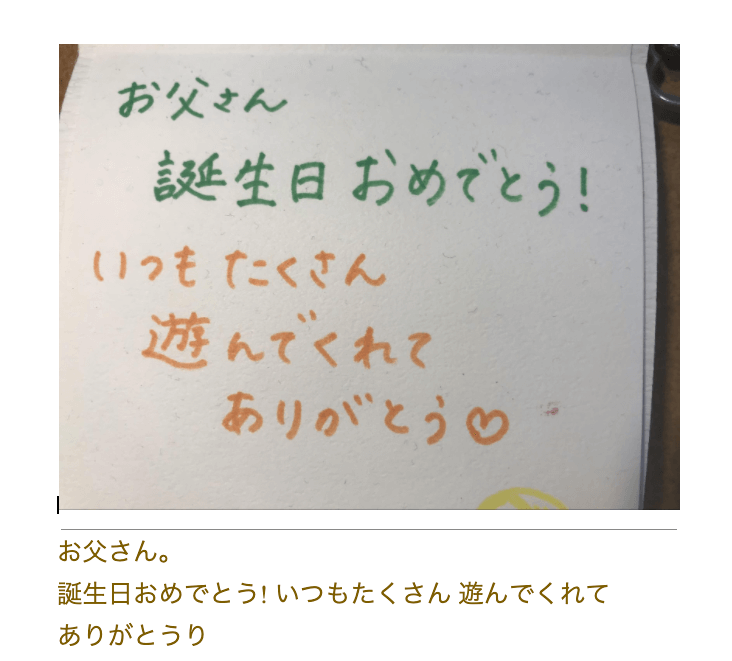 お父さん
誕生日おめでとう!
いつもたくさん
遊んでくれて
ありがとう♡
お父さん。
誕生日おめでとう! いつもたくさん 遊んでくれて
ありがとうり